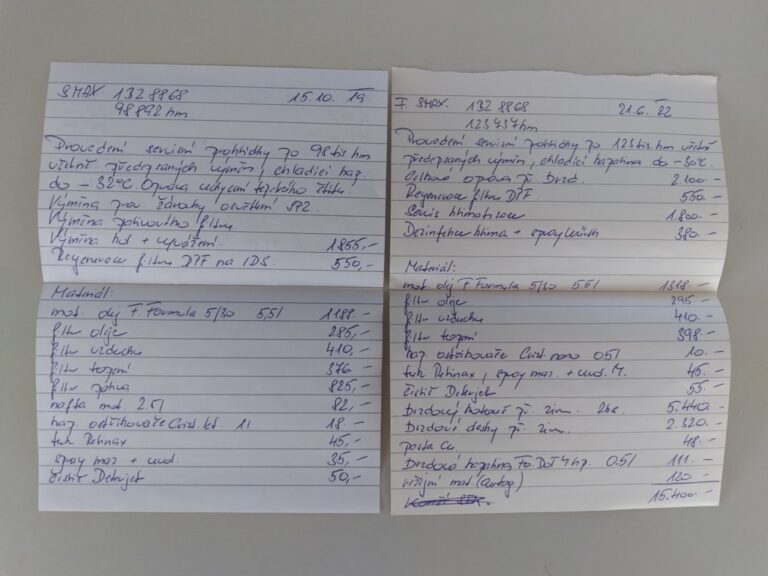 SMAX 1BZ 8868 15.10. 19
98892 km
Provedení servisní prohlídky po 98 tis km
včetně předepsaných výměn, chladící kap.
do -32°C. Oprava uchycení tepelného štítu.
Výměna žárovky osvětlení SPZ.
Výměna palivového filtru.
Výměna kol + vyvážení. 1855,-
Regenerace filtru DPF na IDS. 550,-
Materiál:
mot. olej F Formula 5/30 5,5l 1188.-
filtr oleje 285,-
filtr vzduchu 410,-
filtr topení 376 -
filtr paliva 825,-
nafta mot. 2.5l 82,-
kap. ostřikovače let. 1l 18 -
tuk Retinax 45,-
spray maz. + vod. 35,-
čistič Deterjet 50,-
F. SMAX. 1BZ 8868 21.6. 22
123737 km
Provedení servisní prohlídky po 123 tis. km včetně
předepsaných výměn, chladící kapalina do -30°C.
Celková oprava př. brzd. 2.200.-
Regenerace filtru DPF 550.-
Servis klimatizace 1.800.-
Dezinfekce klima + spray 380.-
Materiál:
mot. olej F Formula 5/30 5.5l 1318.-
filtr oleje 295.-
filtr vzduchu 410.-
filtr topení 398.-
kap. ostřikovače nano 0.5l 10.-
tuk Retinax, spray maz. + vod. M. 45.-
čistič Deterjet 55.-
Brzdový kotouč př. 2ks. 5.440.-
Brzdové desky př. 2.320.-
pasta Cu. 48.-
Brzdová kapalina Fo. DoT 4 0.5l 111.-
mat. 120.-
15.400.-